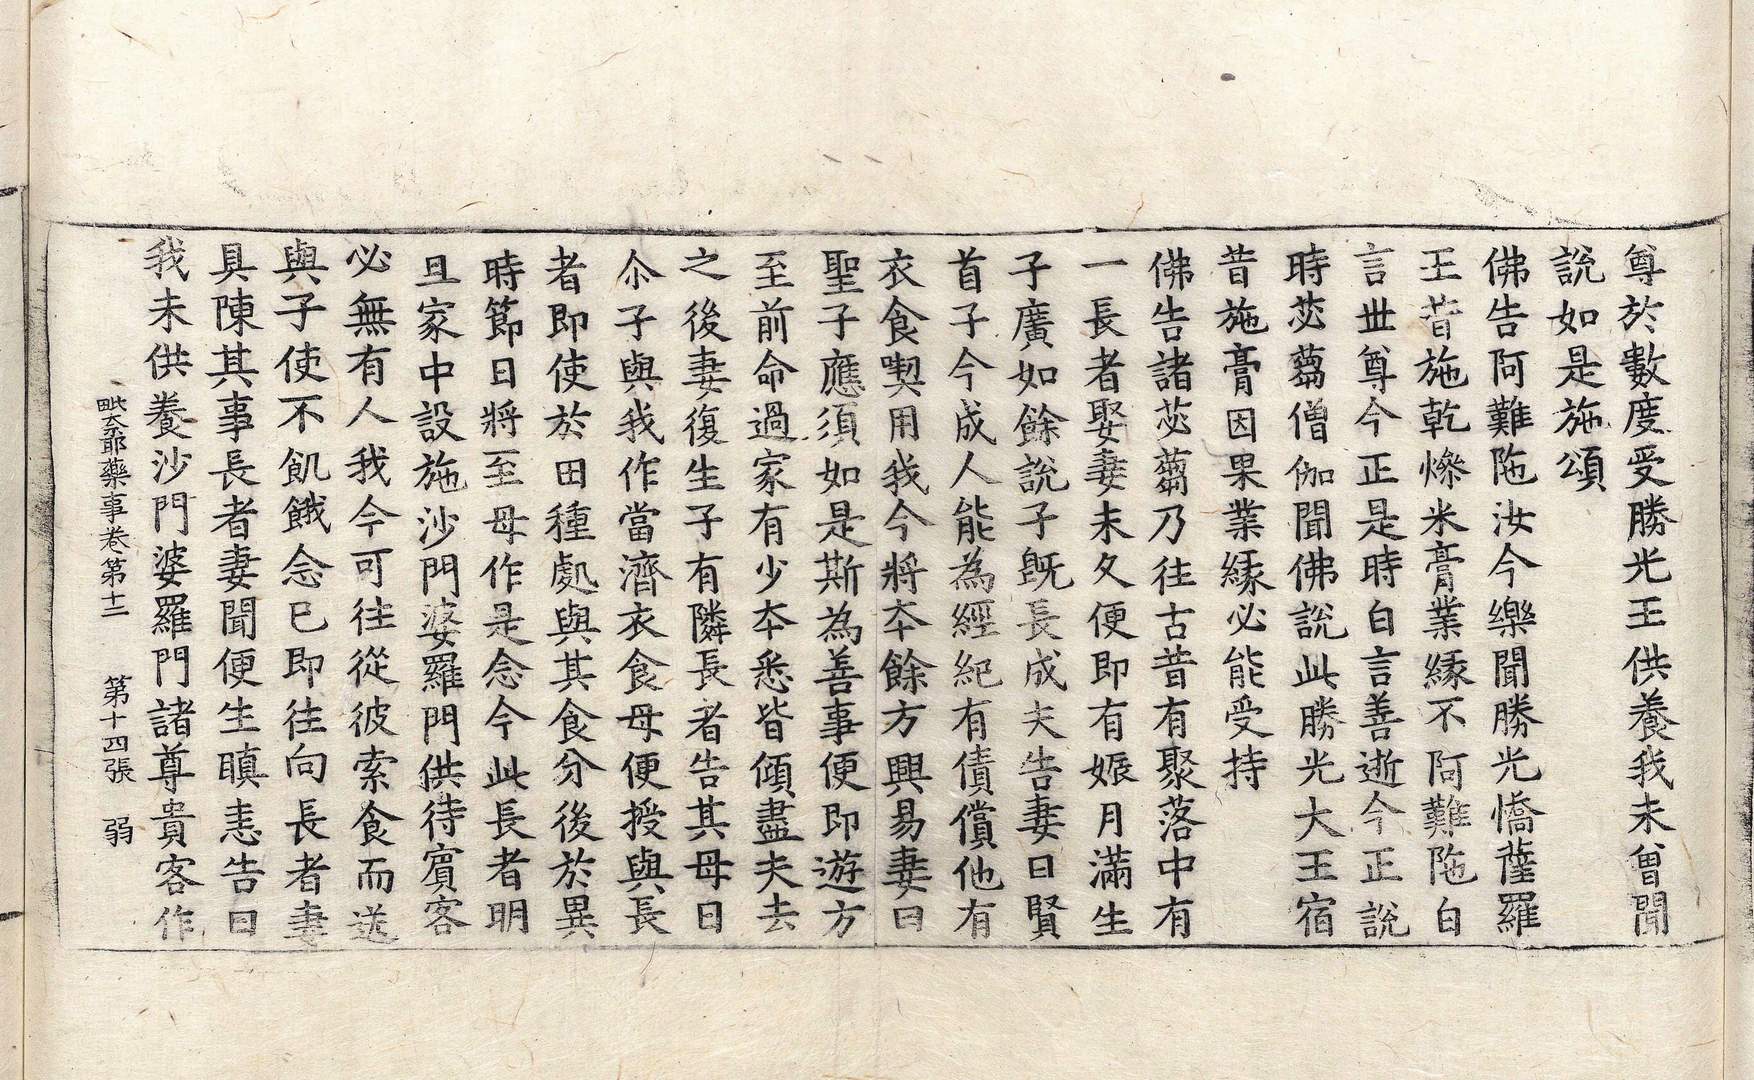 尊於數度受勝光王供養我未曾聞
說如是施頌
佛告阿難陁汝今樂聞勝光憍薩羅
王昔施乾㷮米膏業緣不阿難陁白
言世尊今正是時白言善逝今正說
時苾蒭僧伽聞佛說此勝光大王宿
昔施膏因果業緣必能受持
佛告諸苾蒭乃往古昔有聚落中有
一長者娶妻未久便即有娠月滿生
子廣如餘說子旣長成夫告妻曰賢
首子今成人能為經紀有債償他有
衣食喫用我今將夲餘方興易妻曰
聖子應須如是斯為善事便即遊方
至前命過家有少夲悉皆傾盡夫去
之後妻復生子有隣長者告其母曰
尒子與我作當濟衣食母便授與長
者即使於田種處與其食分後於異
時節日將至母作是念今此長者明
旦家中設施沙門婆羅門供待賓客
必無有人我今可往從彼索食而送
與子使不飢餓念已即往向長者妻
具陳其事長者妻聞便生瞋恚告曰
我未供養沙門婆羅門諸尊貴客作
毗奈耶藥事卷第十二 第十四張 弱